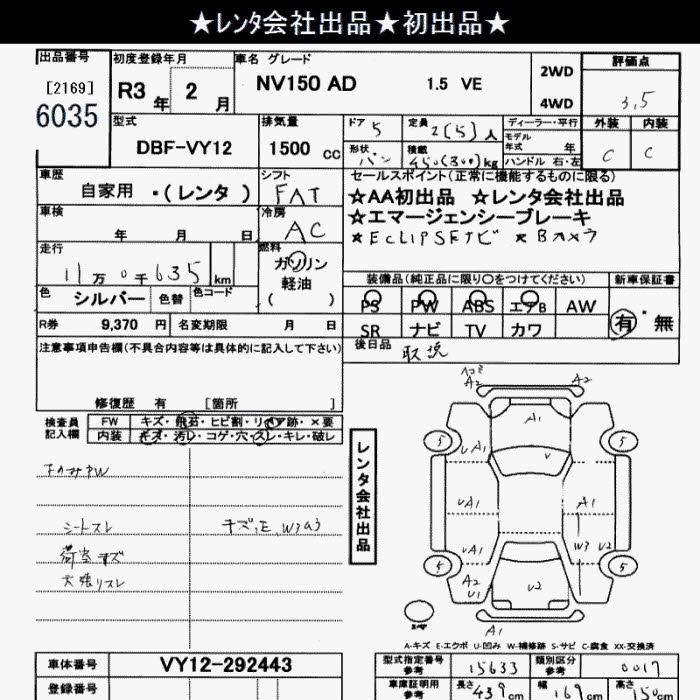 ★レンタ会社出品★初出品★
出品番号 初度登録年月 車名 グレード 評価点
[2169] R3年 2月 NV150 AD 1.5 VE 2WD 3.5
6035 4WD
型式 排気量 ドア 5 定員 2(5)人 ディーラー・平行 外装 内装
モデル年式 年
DBF-VY12 1500 cc 形状 バン 積載 450(300)kg ハンドル 右・左 C C
車歴 シフト セールスポイント(正常に機能するものに限る)
自家用 ・(レンタ) FAT ★AA初出品 ★レンタ会社出品
車検 冷房 ★エマージェンシーブレーキ
年 月 日 AC ★ECLIPSEナビ ★Bカメラ
走行 燃料
11万0千635km ガソリン 装備品(純正品に限り○をつけてください) 新車保証書
色 シルバー 色替 色コード 軽油 PS PW ABS エアB AW 有・無
( ) SR ナビ TV カワ
R券 9,370 円 名変期限 月 日 後日品 取説
注意事項申告欄(不具合内容等は具体的に記入して下さい)
修復歴 有 [箇所 ]
検査員記入欄 FW キズ・飛石・ヒビ割・リペア跡・×要
内装 キズ・汚レ・コゲ・穴・スレ・キレ・破レ
シートスレ キズ,E,W3a3
荷室キズ
天張リスレ
レンタ会社出品
A2 A2
A1
5 UA1 5
UA1 A1
UA1 W3 U2
5 A2 5
U1 U2
スペア
A1
A-キズ E-エクボ U-凹み W-補修跡 S-サビ C-腐食 XX-交換済
車体番号 VY12-292443 型式指定番号参考 15633 類別区分参考 0017
登録番号 車庫証明用参考 長さ 439cm 幅 169cm 高さ 150cm